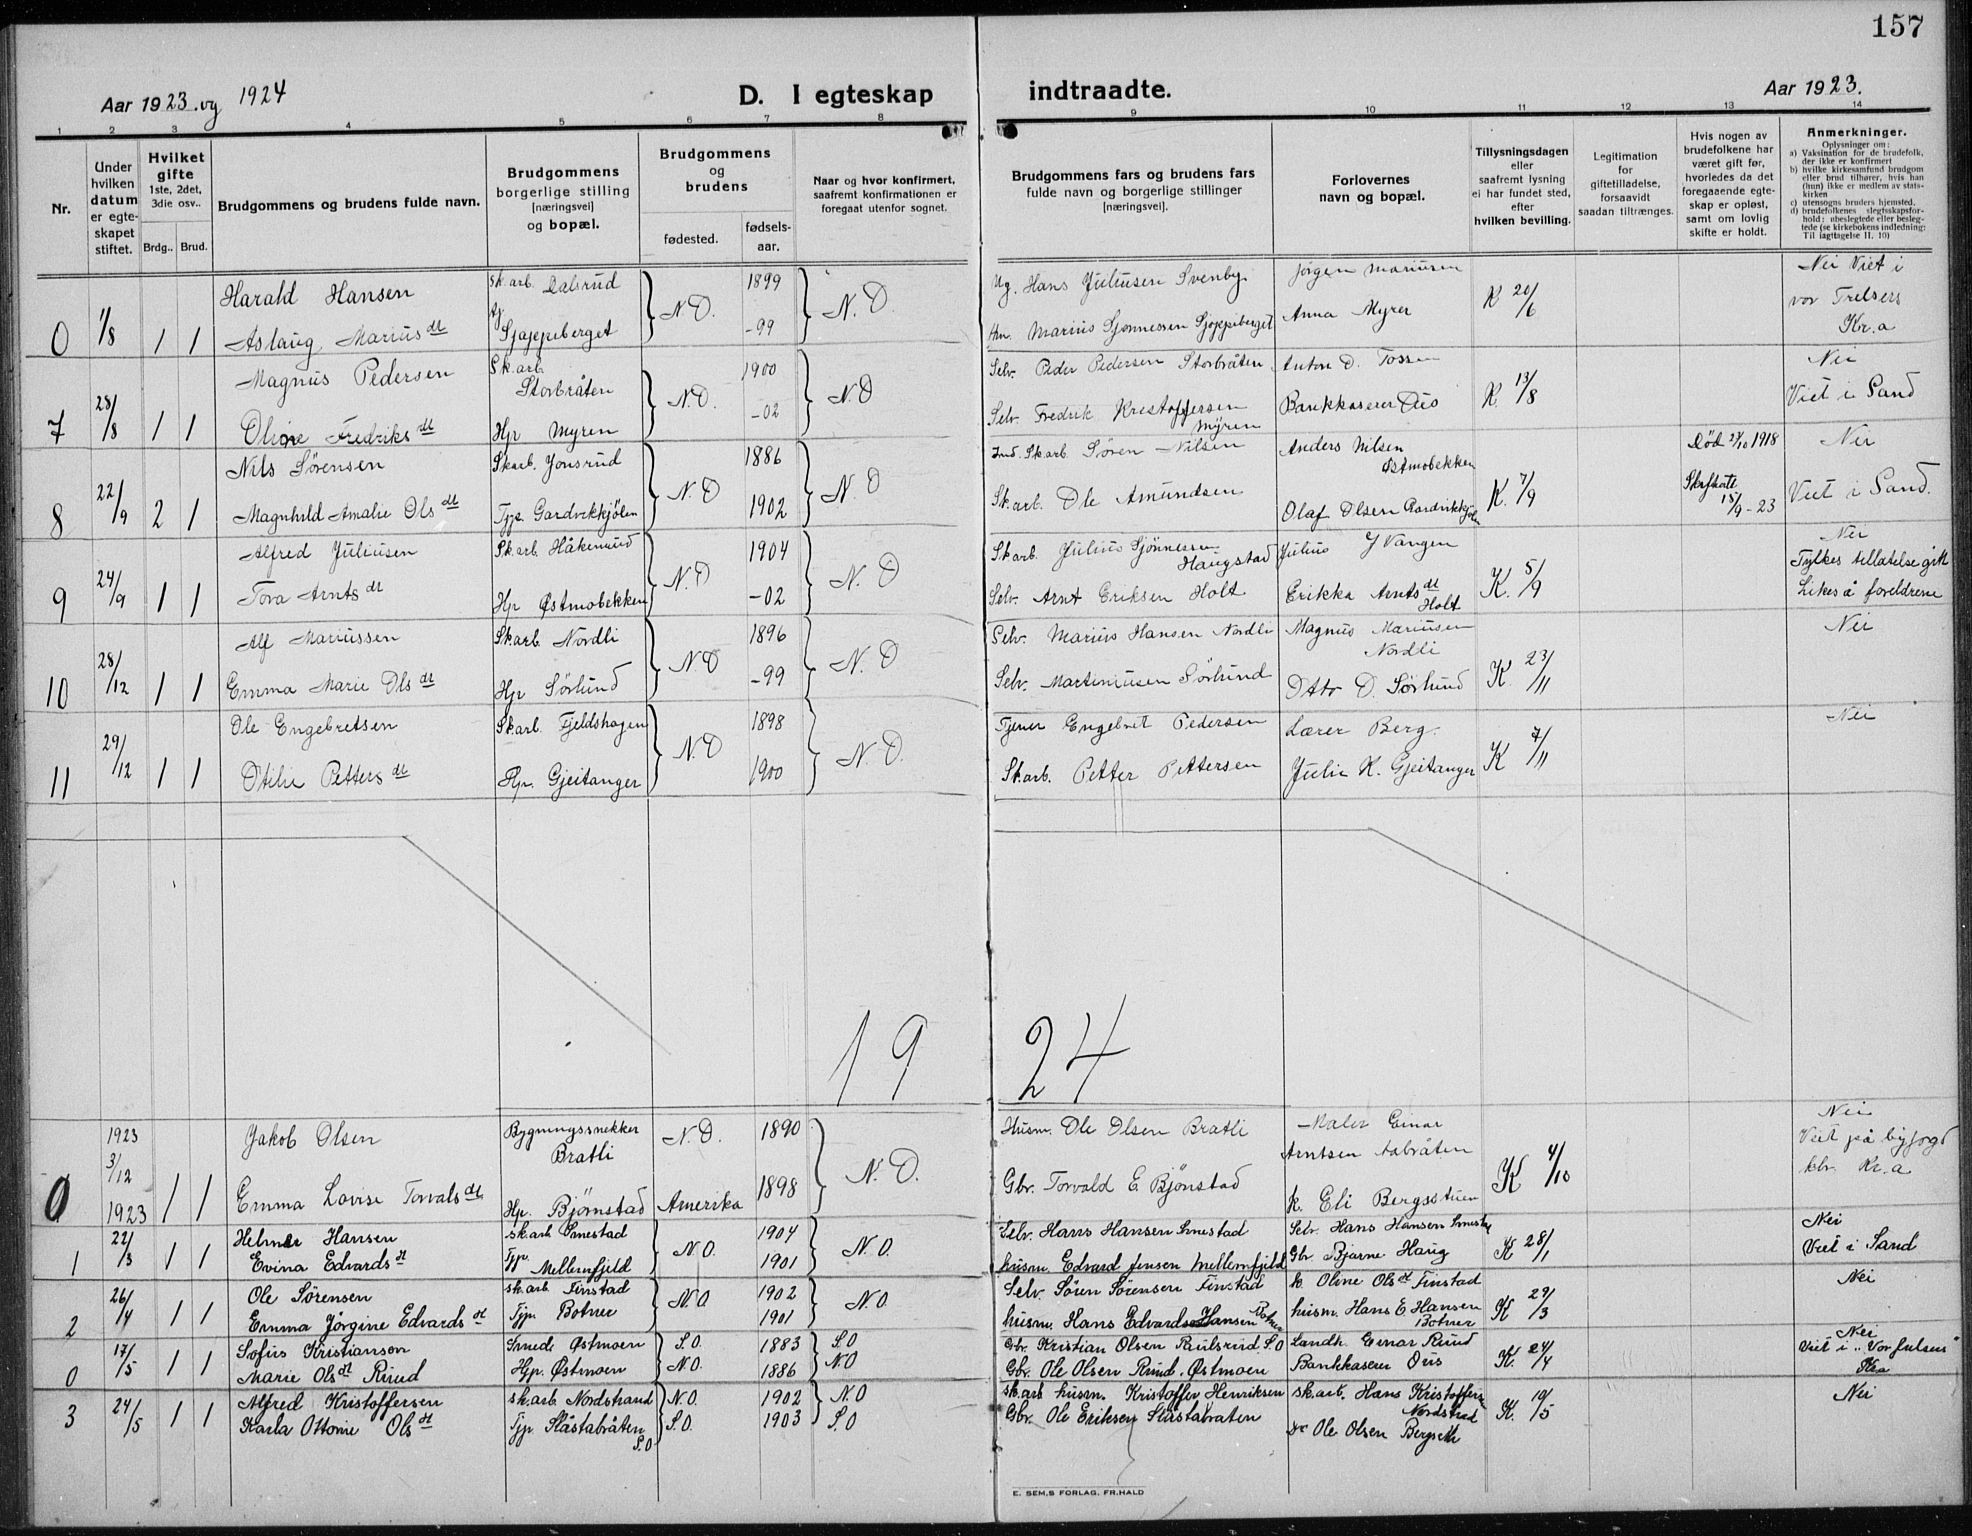 157
Aar 1923 og 1924
D. I egteskap
indtraadte.
Aar 1923.
1 2 3 4 5 6 7 8
9 10 11 12 13 14
Nr.
Under hvilken datum er egteskapet stiftet.
Hvilket gifte
1ste, 2det, 3die osv..
Brdg.. Brud.
Brudgommens og brudens fulde navn.
Brudgommens borgerlige stilling [næringsvei] og bopæl.
Brudgommens og brudens
fødested.
fødsels-aar.
Naar og hvor konfirmert, saafremt konfirmationen er foregaat utenfor sognet.
Brudgommens fars og brudens fars fulde navn og borgerlige stillinger [næringsvei].
Forlovernes navn og bopæl.
Tillysningsdagen eller saafremt lysning ei har fundet sted, efter hvilken bevilling.
Legitimation for giftetilladelse, forsaavidt saadan tiltrænges.
Hvis nogen av brudefolkene har været gift før, hvorledes da det foregaaende egteskap er opløst, samt om lovlig skifte er holdt.
Anmerkninger.
Oplysninger om:
a) Vaksination for de brudefolk, der ikke er konfirmert
b) hvilke kirkesamfund brudgom eller brud tilhører, hvis han (hun) ikke er medlem av statskirken
c) utensogns bruders hjemsted.
d) brudefolkenes slegtsskapsforhold: ubeslegtede eller beslegtede (se kirkebokens indledning: Til iagttagelse II. 10)
0 1/8 1 1 Harald Hansen Sk.arb. Dalsrud N.O. 1899 N.O. Ug. Hans Juliusen Svenby Jørgen Mariusen K 20/6 Nei Viet i
Aslaug Mariusdt Sjøppeberget -99 Marius Sjønnessen Sjøppeberget Anna Myrer vor Frelsers
Kr.a
7 28/8 1 1 Magnus Pedersen Sk.arb. Storbråten N.O. 1900 N.O Selv. Peder Pedersen Storbråten Anton O. K. 13/8 Nei
Oline Fredriksdt Hp Myren -02 Selv. Fredrik Kristoffersen Myren Bankkaserer Ous Viet i Sand
8 22/9 2 1 Nils Sørensen Skarb. Jonsrud N.O 1886 N.O Ind. Sk.arb. Søren Nilsen Anders Nilsen Østmobekken K. 7/9 Død 1918 Nei
Magnhild Amalie Olsdt Tjp. Gardvikkjølen 1902 Sk.arb. Ole Amundsen Olaf Olsen Gardvikkjølen 18/9-23 Viet i Sand.
9 24/9 1 1 Alfred Juliusen Sk.arb. Håkenrud N.O 1904 N.O Sk.arb. Julius Sjønnessen Haugstad Julius J Vangen K. 5/9 Nei
Tora Arntsdt Hp Østmobekken -02 Selv. Arnt Eriksen Holt Erikka Arntsdt Holt Fylkes tillatelse gitt
Likeså foreldrene
10 28/12 1 1 Alf Mariussen Skarb. Nordli N.O 1896 N.O Selv. Marius Hansen Nordli Magnus Mariusen Nordli K. 23/11 Nei
Emma Marie Olsdt Hp Sørlund -99 Selv. Martiniusen Sørlund Otto O. Sørlund
11 29/12 1 1 Ole Engebretsen Skarb. Fjeldshagen N.O 1898 N.O. Tjener Engebret Pedersen Lærer Berg. K 7/11 Nei
Otilie Pettersdt Hp. Gjeitanger 1900 Sk.arb. Petter Pettersen Julie K. Gjeitanger
1924
0 1923 3/12 1923 1 1 Jakob Olsen Bygningssnekker Bratli N.O. 1890 N.O. Husm. Ole Olsen Bratli Maler Einar Arntsen Aabråten K 4/10 Nei
Emma Lovise Torvalsdt Hp. Bjørnstad Amerika 1898 Gbr. Torvald E. Bjønstad k. Eli Bergsstuen Viet på byfogd
ktr. Kr.a
1 22/3 1 1 Helmer Hansen sk.arb. Smestad N.O. 1904 N.O. Selv. Hans Hansen Smestad Selv. Hans Hansen Smestad K 28/1 Nei
Evina Edvardsdt Tjp Mellemfjeld 1901 husm. Edvard Jensen Mellemfjeld Gbr Bjarne Haug Viet i Sand
2 26/4 1 1 Ole Sørensen sk.arb. Finstad N.O 1902 N.O. Selv. Sören Sörensen Finstad k. Oline Olsdt Finstad K 29/3 Nei
Emma Jørgine Edvardsdt Tjp. Botner 1901 husm. Hans Edvard Hansen Botner husm. Hans E Hansen Botner
0 17/5 1 1 Sofus Kristiansen Smed. Østmoen S.O. 1883 S.O Gbr. Kristian Olsen Paulsrud S.O Landh. Einar Ruud K. 24/4 Nei
Marie Olsdt Ruud Hjp. Østmoen N.O. 1886 N.O Gbr. Ole Olsen Ruud. Østmoen Bankkaserer Ous Viet i "Vor frelsers"
Kra
3 24/5 1 1 Alfred Kristoffersen sk.arb. Nordstrand N.O. 1902 N.O sk.arb. husm. Kristoffer Henriksen sk.arb. Hans Kristoffersen Nordstrand K. 10/5 Nei
Karla Ottonie Olsdt Tjp. Slåstabråten S.O S.O. 1903 S.O Gbr. Ole Eriksen Slåstabraten Ole Olsen Bergseth
E. SEM.S FORLAG, FR.HALD